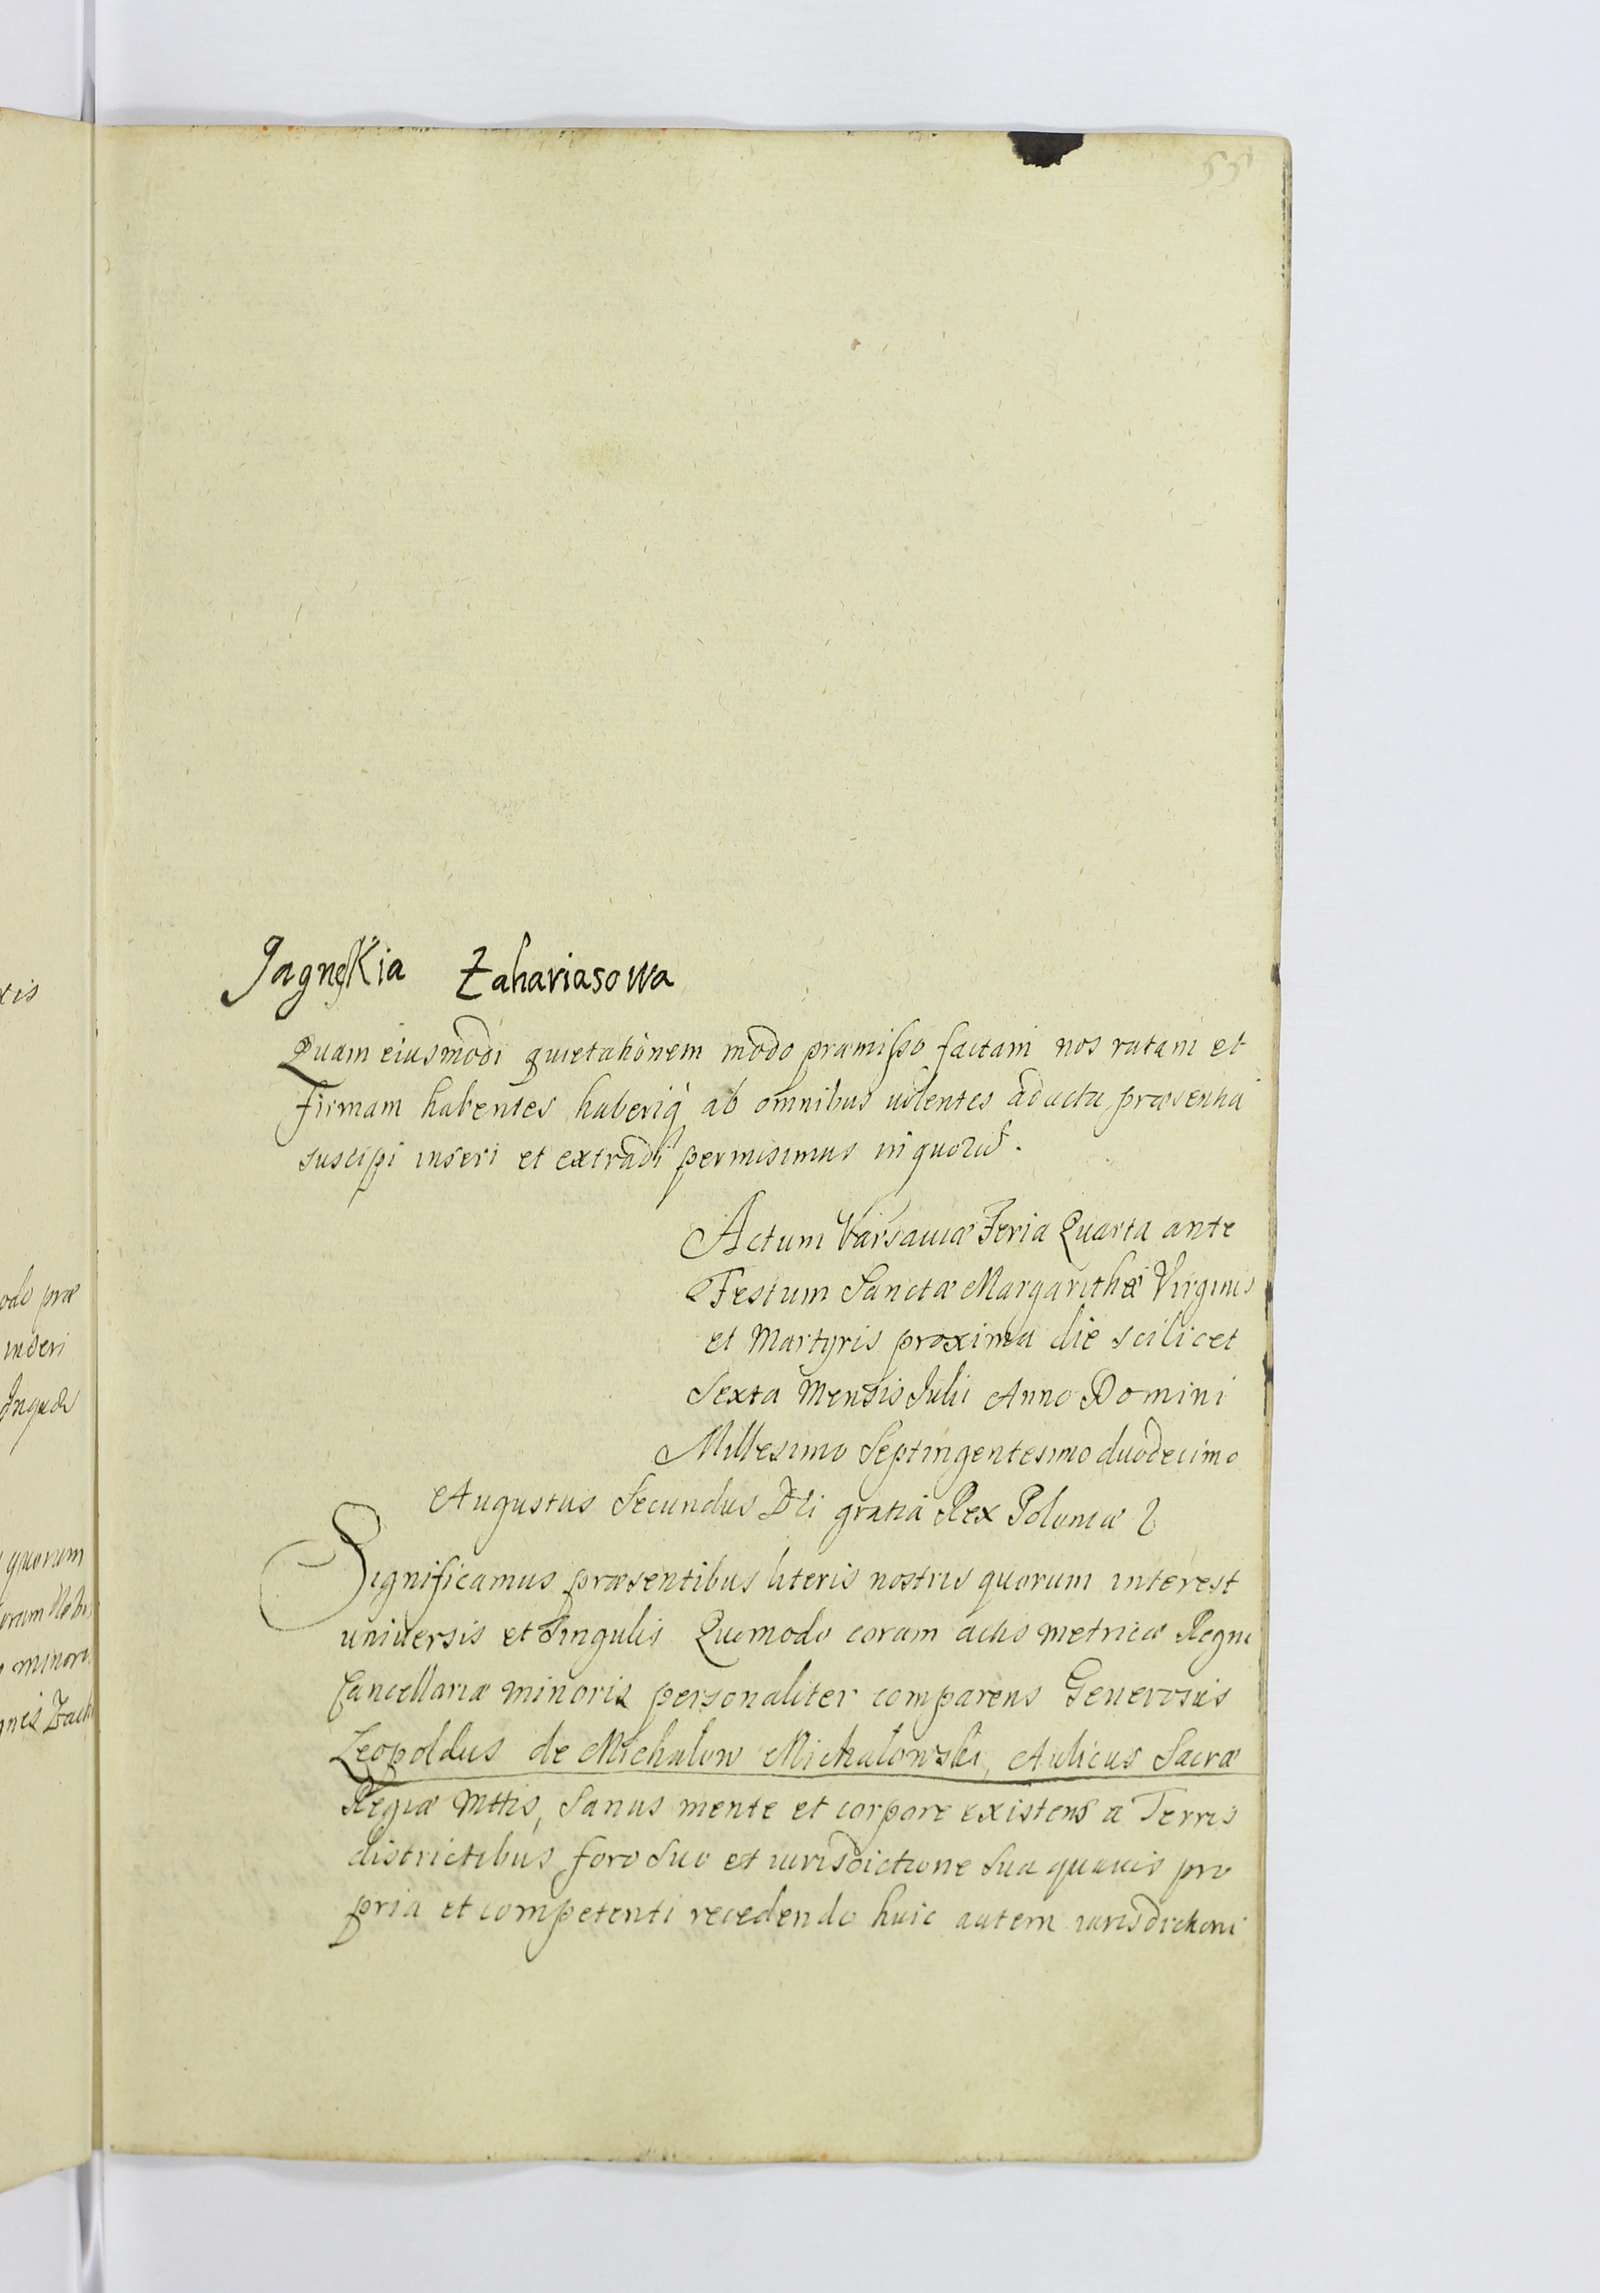 55
Jagneſkia Zahariasowa
Quam eiusmodi quietationem modo præmisso factam nos ratam et
firmam habentes haberiq́ ab omnibus volentes ad acta præsentia
suscipi inseri et extradi permisimus in quorū.
Actum Varsaviæ Feria Quarta ante
Festum Sanctæ Margarithæ Virginis
et Martyris proxima die scilicet
Sexta Mensis Julii Anno Domini
Millesimo Septingentesimo duodecimo
Augustus Secundus Dei gratia Rex Poloniæ
Significamus præsentibus literis nostris quorum interest
universis et Singulis Quomodo coram actis metricæ Regni
Cancellariæ minoris personaliter comparens Generosus
Leopoldus de Michalow Michalowski, Aulicus Sacræ
Regiæ Mttis, Sanus mente et corpore existens a Terris
districtibus foro Suo et iurisdictione Sua quavis pro
pria et competenti recedendo huic autem iurisdictioni
xis
odo præ
inseri
quorum
minori